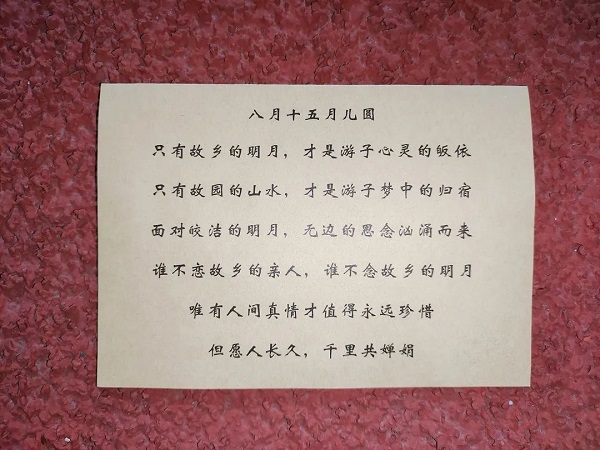 八月十五月儿圆
只有故乡的明月，才是游子心灵的皈依
只有故园的山水，才是游子梦中的归宿
面对皎洁的明月，无边的思念汹涌而来
谁不恋故乡的亲人，谁不念故乡的明月
唯有人间真情才值得永远珍惜
但愿人长久，千里共婵娟